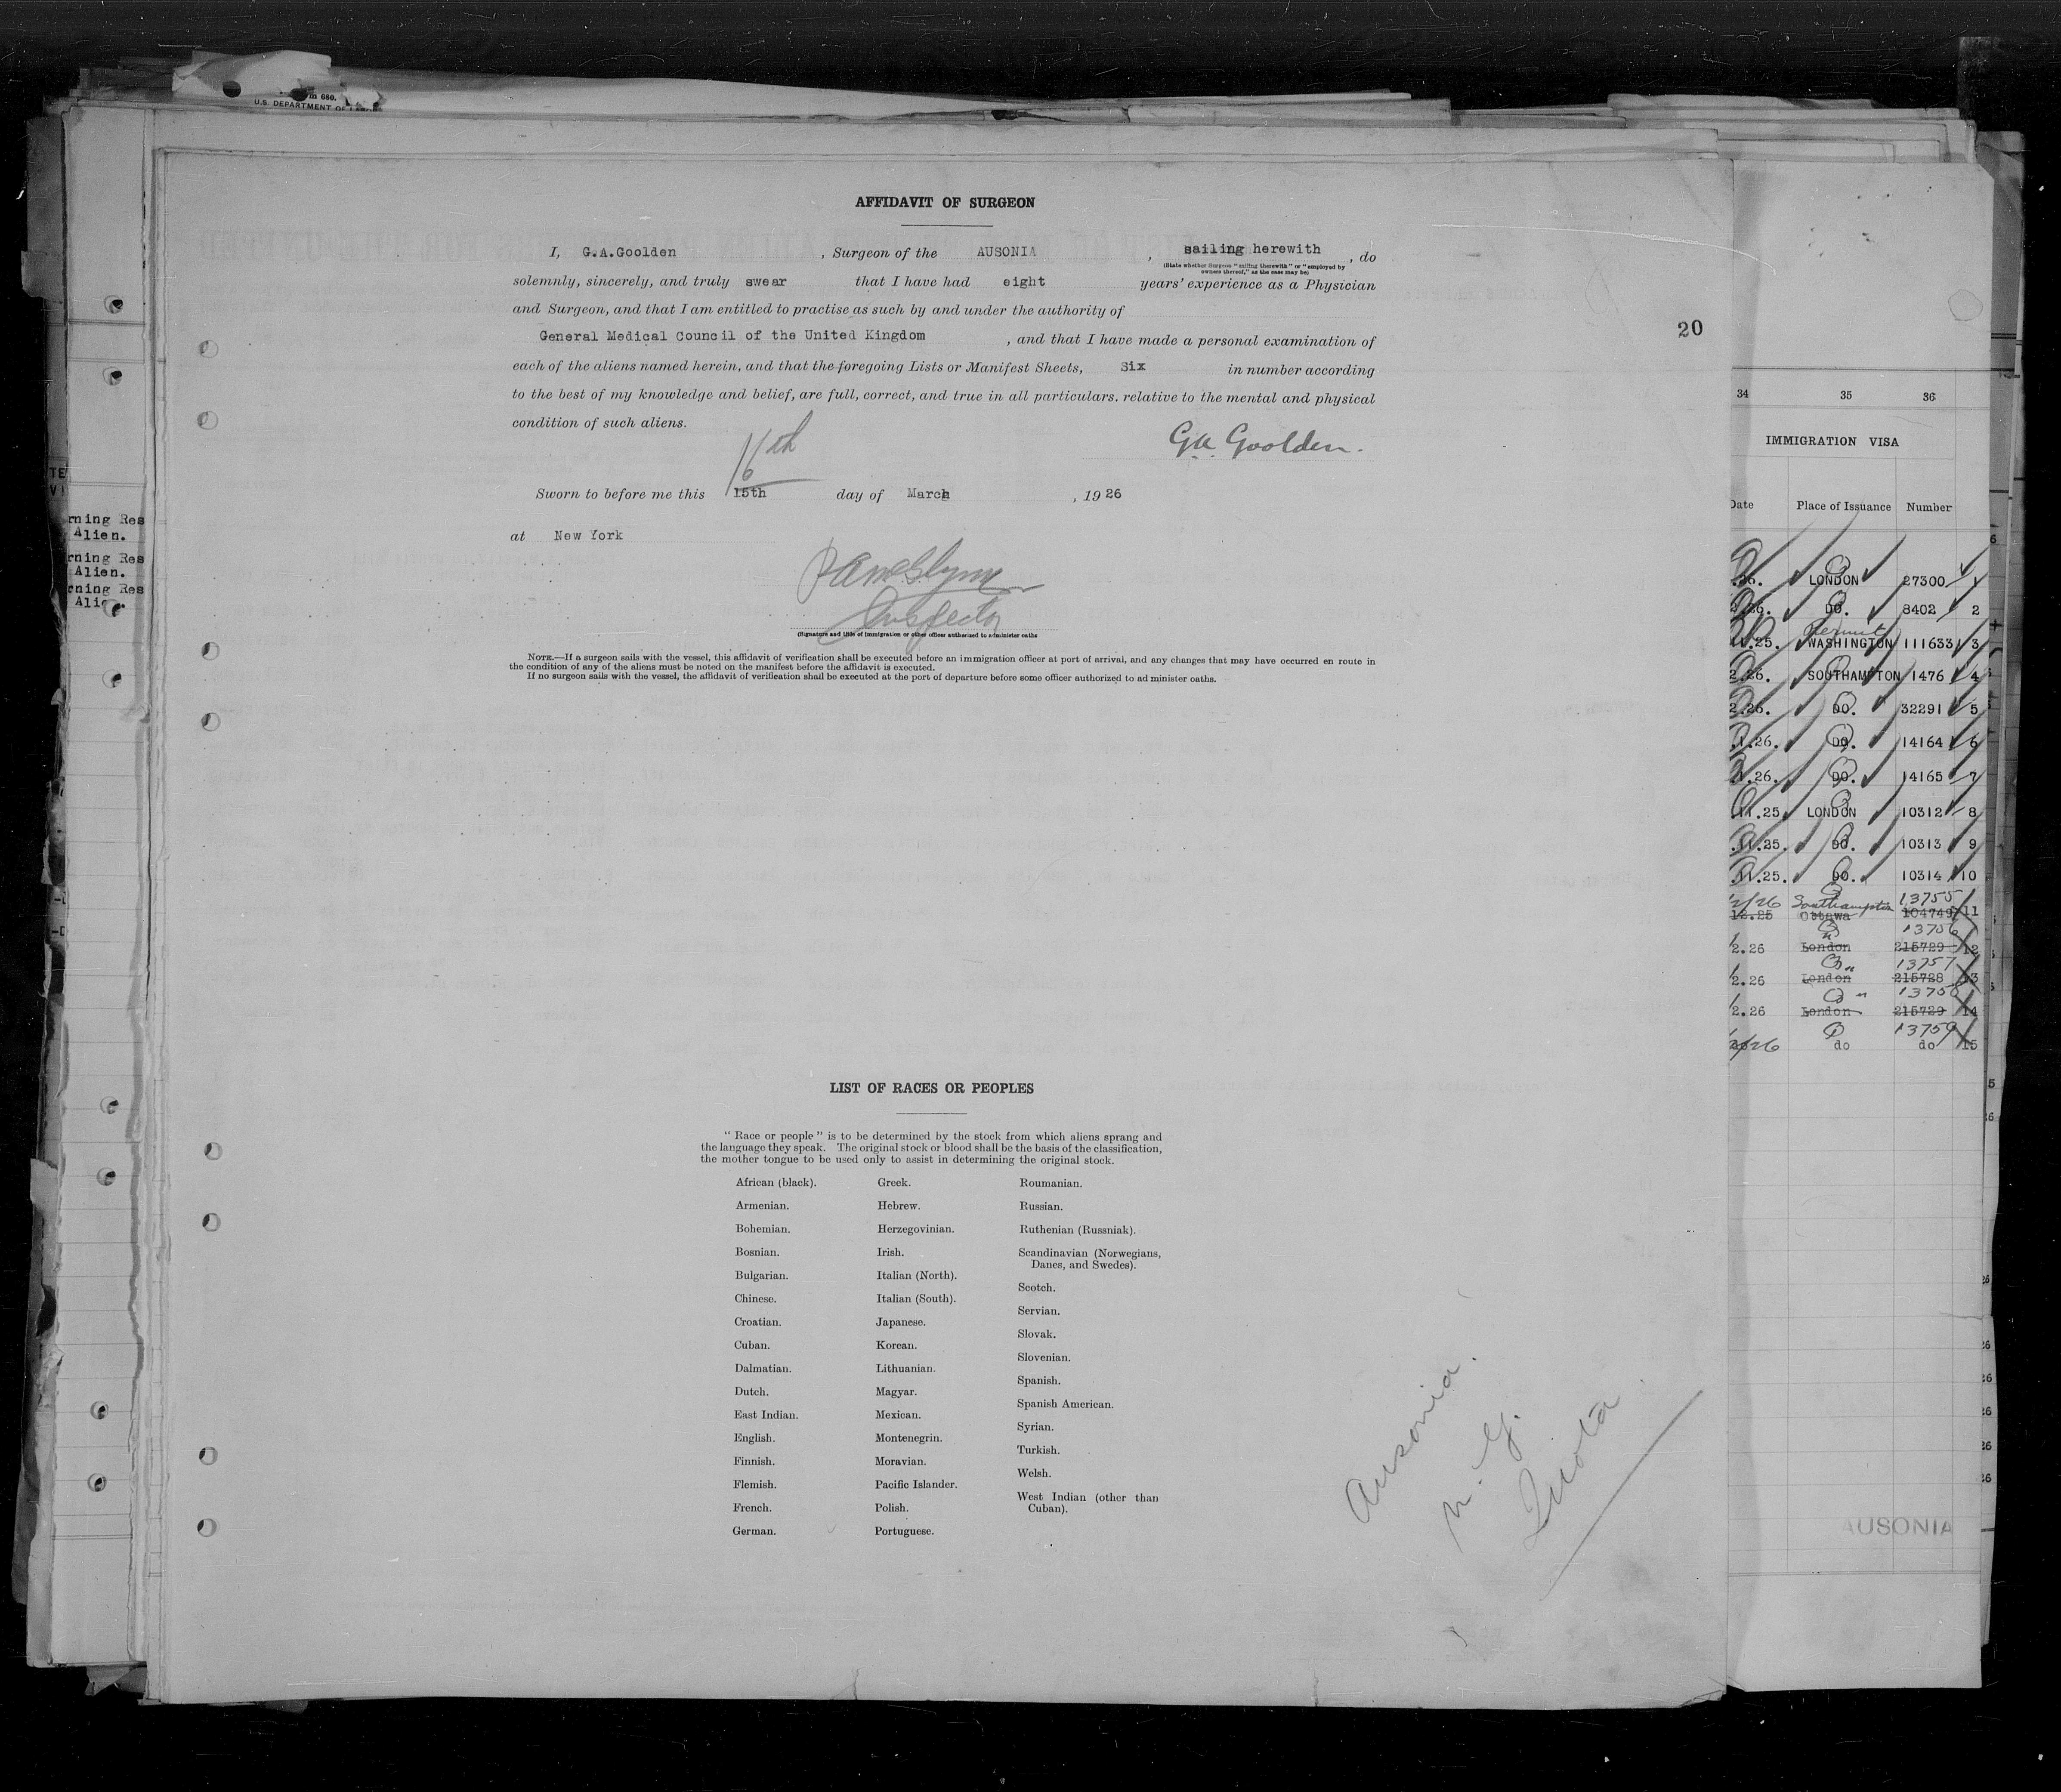 m 680.
U.S. DEPARTMENT OF LABOR
AFFIDAVIT OF SURGEON
I, G.A.Goolden, Surgeon of the AUSONIA, sailing herewith, do
(State whether Surgeon "sailing therewith" or "employed by
owners thereof," as the case may be)
solemnly, sincerely, and truly swear that I have had eight years' experience as a Physician
and Surgeon, and that I am entitled to practise as such by and under the authority of
General Medical Council of the United Kingdom, and that I have made a personal examination of
each of the aliens named herein, and that the foregoing Lists or Manifest Sheets, Six in number according
to the best of my knowledge and belief, are full, correct, and true in all particulars. relative to the mental and physical
condition of such aliens.
G.A. Goolden.
16th
Sworn to before me this 15th day of March, 1926
at New York
Inspector
(Signature and title of immigration or other officer authorized to administer oaths
NOTE.—If a surgeon sails with the vessel, this affidavit of verification shall be executed before an immigration officer at port of arrival, and any changes that may have occurred en route in
the condition of any of the aliens must be noted on the manifest before the affidavit is executed.
If no surgeon sails with the vessel, the affidavit of verification shall be executed at the port of departure before some officer authorized to ad minister oaths.
LIST OF RACES OR PEOPLES
"Race or people" is to be determined by the stock from which aliens sprang and
the language they speak. The original stock or blood shall be the basis of the classification,
the mother tongue to be used only to assist in determining the original stock.
African (black).
Armenian.
Bohemian.
Bosnian.
Bulgarian.
Chinese.
Croatian.
Cuban.
Dalmatian.
Dutch.
East Indian.
English.
Finnish.
Flemish.
French.
German.
Greek.
Hebrew.
Herzegovinian.
Irish.
Italian (North).
Italian (South).
Japanese.
Korean.
Lithuanian.
Magyar.
Mexican.
Montenegrin.
Moravian.
Pacific Islander.
Polish.
Portuguese.
Roumanian.
Russian.
Ruthenian (Russniak).
Scandinavian (Norwegians,
Danes, and Swedes).
Scotch.
Servian.
Slovak.
Slovenian.
Spanish.
Spanish American.
Syrian.
Turkish.
Welsh.
West Indian (other than
Cuban).
Ausonia.
n. y.
Quota
20
rning Res
Alien.
rning Res
Alien.
rning Res
34 35 36
IMMIGRATION VISA
Date Place of Issuance Number
.26. LONDON 27300 1
2.26. DO. 8402 2
Permit
11.25. WASHINGTON 111633 3
2.26. SOUTHAMPTON 1476 4
2.26. DO. 32291 5
.1.26. DO. 14164 6
1.26. DO. 14165 7
.11.25. LONDON 10312 8
.11.25. DO. 10313 9
.11.25. DO. 10314 10
2/26 Southampton 13755
12.25 Ottawa 104749 11
" 13756
2.26 London 215729 12
" 13757
2.26 London 215728 13
" 13758
2.26 London 215729 14
13759
26 do do 15
AUSONIA